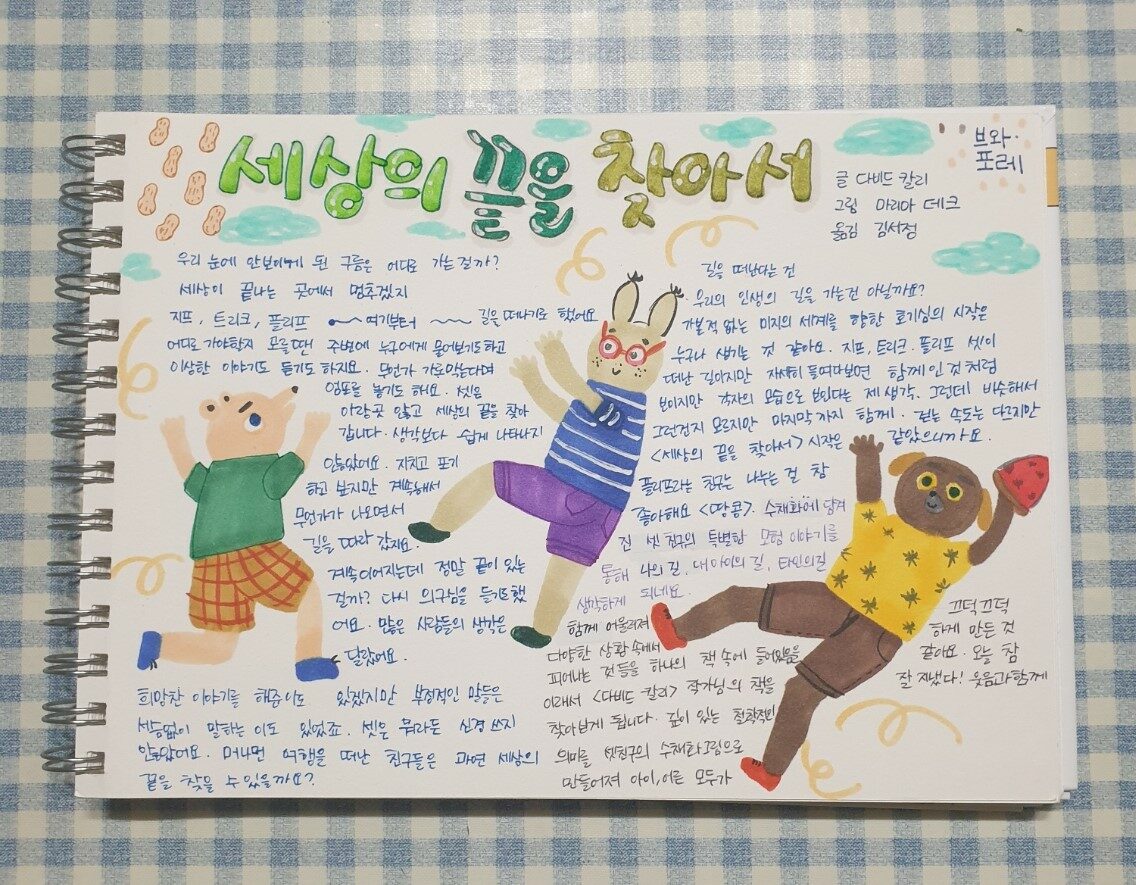 세상의 끝을 찾아서
브와·
포레
글 다비드 칼리
그림 마리아 데크
옮김 김서정
우리 눈에 안보이게 된 구름은 어디로 가는걸까?
세상이 끝나는 곳에서 멈추겠지
지프, 트리크, 플리프 여기부터 길을 떠나기로 했어요
어디로 가야할지 모를 땐 주변에 누구에게 물어보기도하고
이상한 이야기도 듣기도 하지요. 무언가 가로막는다며
엄포를 놓기도 해요. 셋은
아랑곳 않고 세상의 끝을 찾아
갑니다. 생각보다 쉽게 나타나지
않았어요. 지치고 포기
하고 싶지만 계속해서
무언가가 나오면서
길을 따라 갔지요.
계속이어지는데 정말 끝이 있는
걸까? 다시 의구심을 들기도했
어요. 많은 사람들의 생각은
달랐어요.
희망찬 이야기를 해준이도 있겠지만 부정적인 말들은
서슴없이 말하는 이도 있었죠. 셋은 뭐라든 신경 쓰지
않았어요. 머나먼 여행을 떠난 친구들은 과연 세상의
끝을 찾을 수 있을까요?
길을 떠난다는 건
우리의 인생의 길을 가는건 아닐까요?
가본적 없는 미지의 세계를 향한 호기심의 시작은
누구나 생기는 것 같아요. 지프, 트리크. 플리프 셋이
떠난 길이지만 자세히 들여다보면 함께인것처럼
보이지만 각자의 모습으로 보인다는 제 생각. 그런데 비슷해서
그런건지 모르지만 마지막까지 함께. 걷는 속도는 다르지만
같았으니까요.
<세상의 끝을 찾아서> 시작은
플리프라는 친구는 나누는 걸 참
좋아해요 <땅콩>. 수채화에 담겨
진 셋 친구의 특별한 모험 이야기를
통해 나의길, 내 아이의 길, 타인의길
생각하게 되네요.
함께 어울러져
다양한 상황속에서
피어나는 것들을 하나의 책 속에 들어있음을
이래서 <다비드 칼리> 작가님의 책을
찾아보게 됩니다. 깊이 있는 철학적인
의미를 셋친구의 수채화그림으로
만들어져 아이,어른 모두가
끄덕끄덕
하게 만든 것
같아요. 오늘 참
잘 지냈다! 웃음과함께